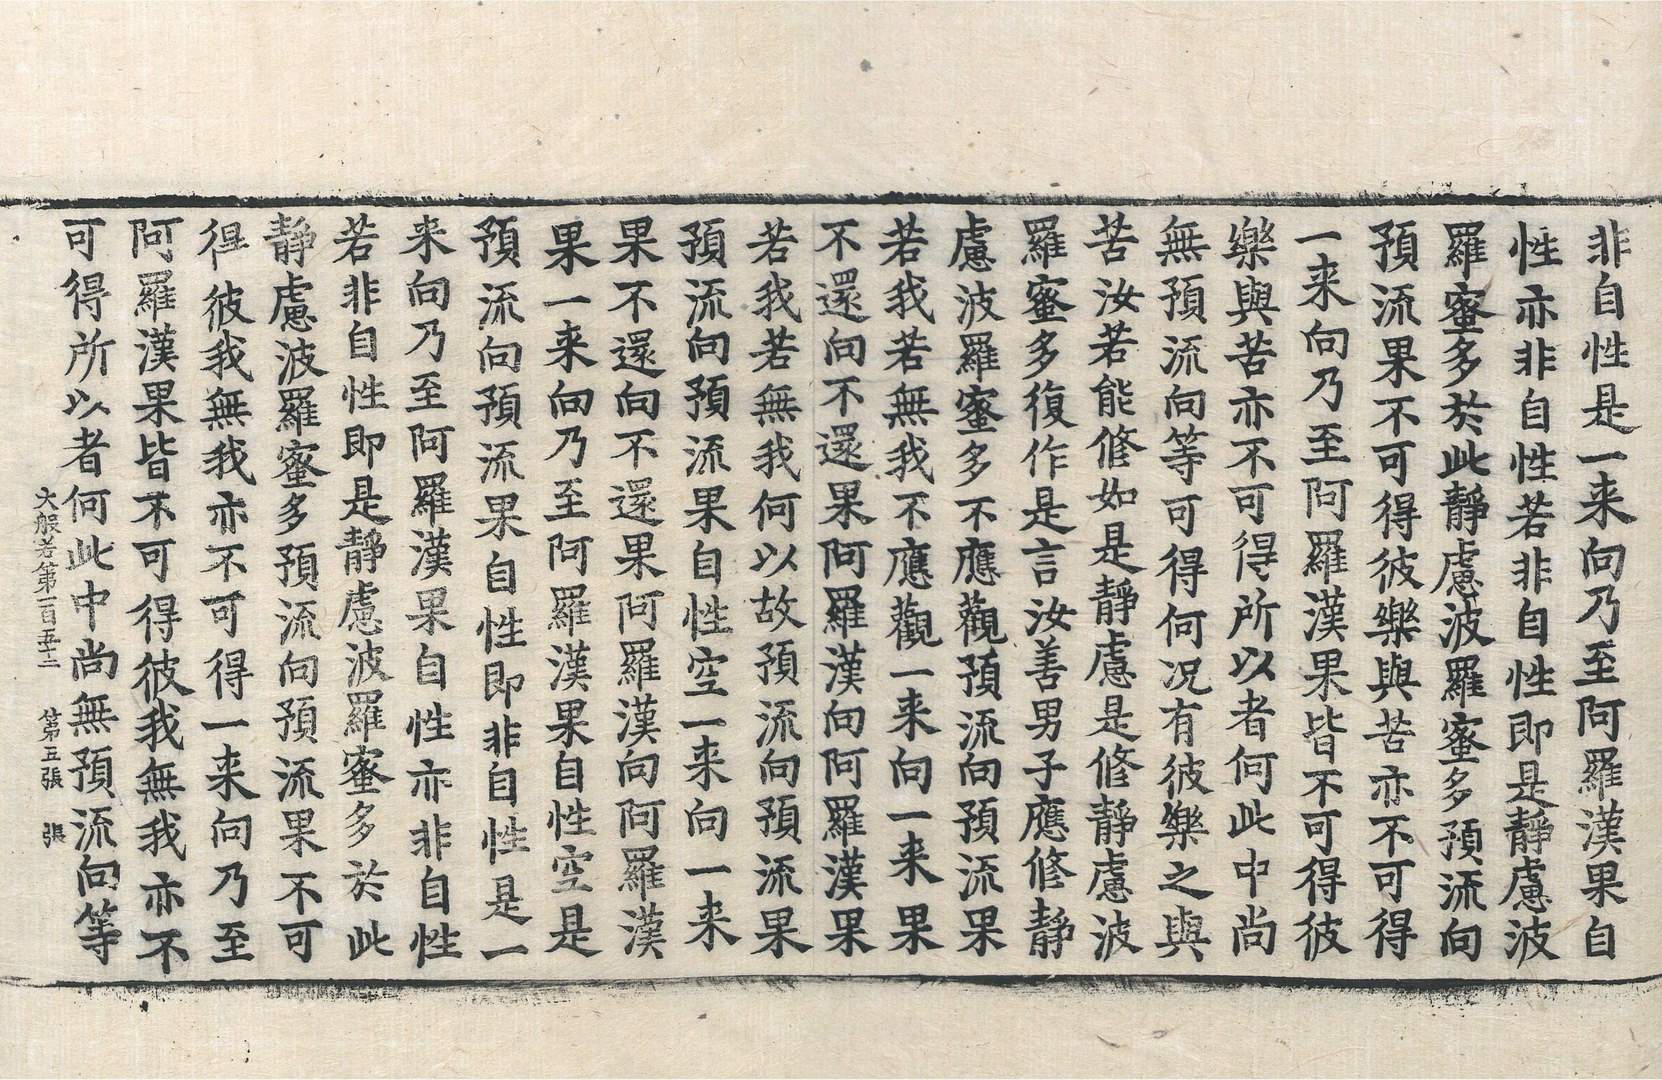 非自性是一来向乃至阿羅漢果自
性亦非自性若非自性即是靜慮波
羅蜜多於此靜慮波羅蜜多預流向
預流果不可得彼樂與苦亦不可得
一来向乃至阿羅漢果皆不可得彼
樂與苦亦不可得所以者何此中尚
無預流向等可得何况有彼樂之與
苦汝若能修如是靜慮是修靜慮波
羅蜜多復作是言汝善男子應修靜
慮波羅蜜多不應觀預流向預流果
若我若無我不應觀一来向一来果
不還向不還果阿羅漢向阿羅漢果
若我若無我何以故預流向預流果
預流向預流果自性空一来向一来
果不還向不還果阿羅漢向阿羅漢
果一来向乃至阿羅漢果自性空是
預流向預流果自性即非自性是一
来向乃至阿羅漢果自性亦非自性
若非自性即是靜慮波羅蜜多於此
靜慮波羅蜜多預流向預流果不可
得彼我無我亦不可得一来向乃至
阿羅漢果皆不可得彼我無我亦不
可得所以者何此中尚無預流向等
大般若第一百五十二 第五張 張